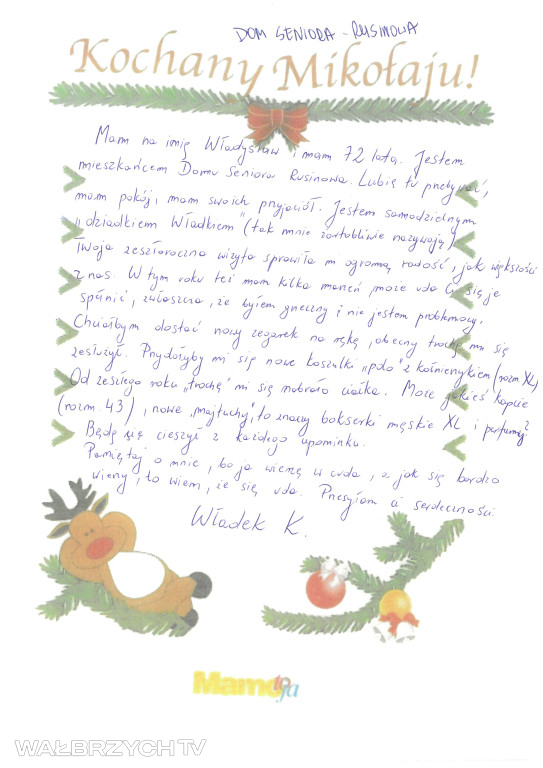 DOM SENIORA - RUSINOWA
Kochany Mikołaju!
Mam na imię Władysław i mam 72 lata. Jestem
mieszkańcem Domu Seniora Rusinowa. Lubię tu przebywać,
mam pokój, mam swoich przyjaciół. Jestem samodzielnym
"dziadkiem Władkiem" (tak mnie żartobliwie nazywają)
Twoja zeszłoroczna wizyta sprawiła m ogromną radość, jak większości
z nas. W tym roku też mam kilka marzeń, może uda Ci się je
spełnić, zwłaszcza, że byłem grzeczny i nie jestem problemowy.
Chciałbym dostać nowy zegarek na rękę, obecny trochę mu się
zesłużył. Przydałyby mi się nowe koszulki "polo" z kołnierzykiem (rozm XL)
Od zeszłego roku "trochę" mi się nabrało ciałka. Może jakieś kapcie
(rozm. 43), nowe "majtuchy", to znaczy bokserki męskie XL i perfumy?
Będę się cieszył z każdego upominku.
Pamiętaj o mnie, bo ja wierzę w cuda, a jak się bardzo
wierzy, to wiem, że się uda. Przesyłam Ci serdeczności
Władek K.
Mamo to ja
WAŁBRZYCH TV